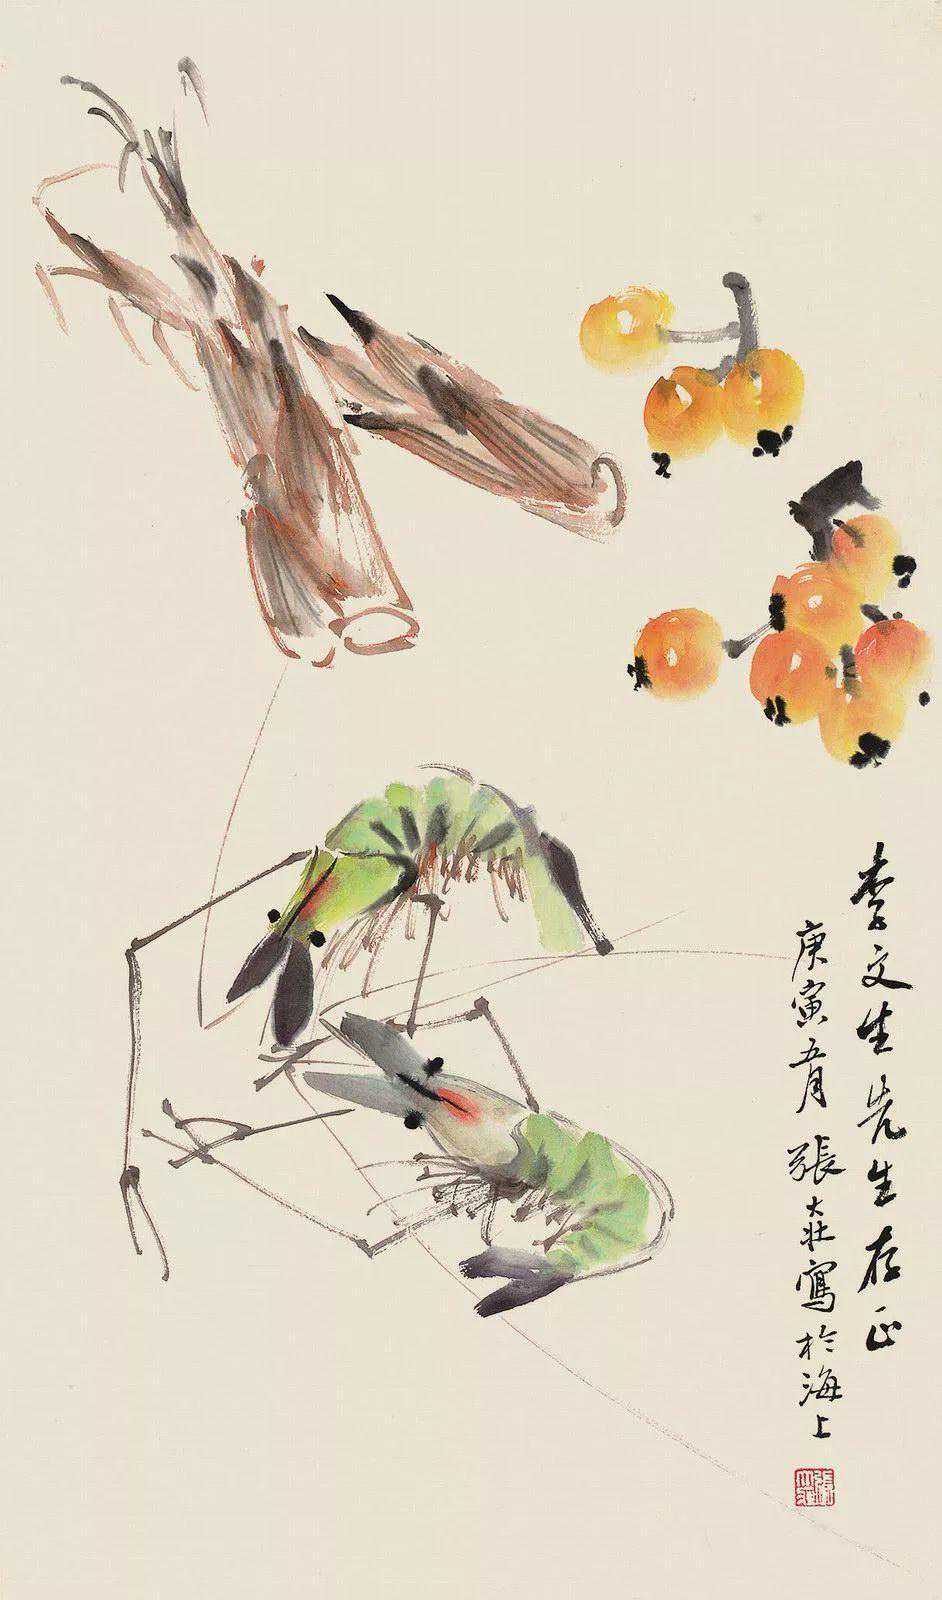 李文生先生存正
庚寅五月 張大壯寫於海上